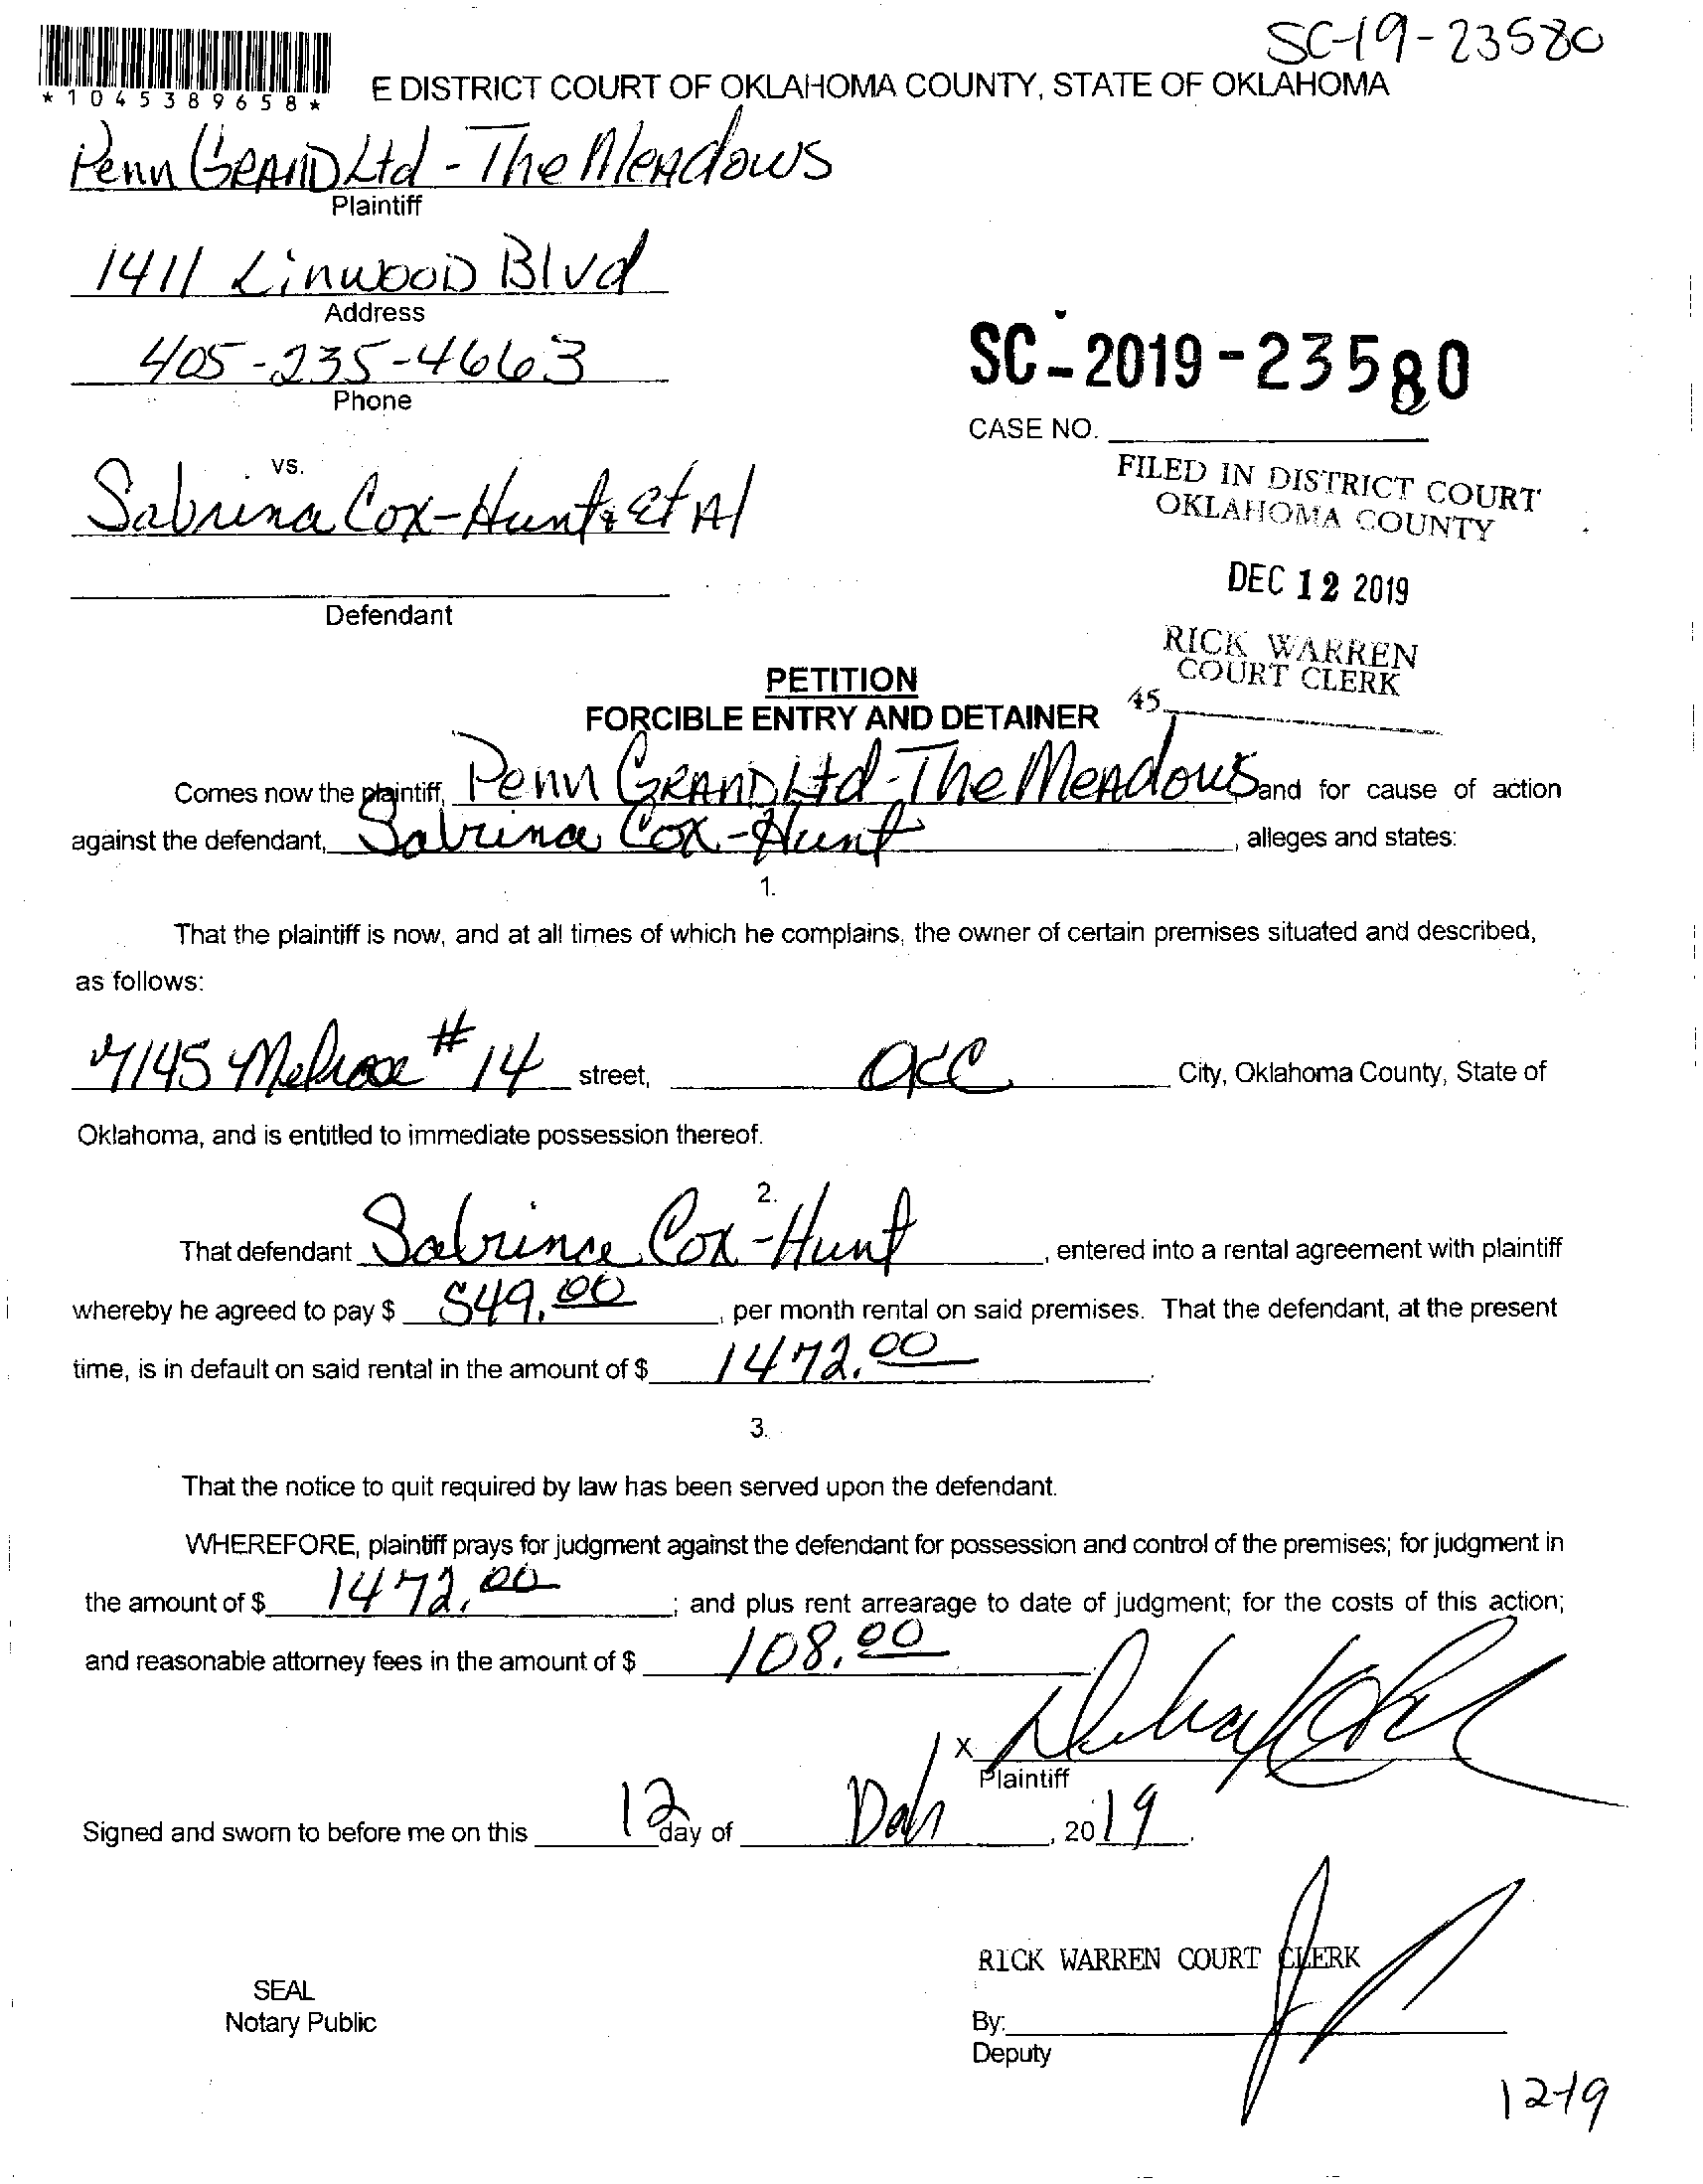 SC-19-23580
*1045389658*
E DISTRICT COURT OF OKLAHOMA COUNTY, STATE OF OKLAHOMA
Penn GRAND Ltd - The Meadows
Plaintiff
1411 Linwood Blvd
Address
405-235-4663
Phone
SC-2019-23580
CASE NO.
vs.
Sabrina Cox-Hunt & Et Al
FILED IN DISTRICT COURT
OKLAHOMA COUNTY
DEC 12 2019
Defendant
RICK WARREN
COURT CLERK
45
PETITION
FORCIBLE ENTRY AND DETAINER
Comes now the plaintiff, Penn GRAND Ltd - The Meadows and for cause of action
against the defendant, Sabrina Cox-Hunt, alleges and states:
1.
That the plaintiff is now, and at all times of which he complains, the owner of certain premises situated and described,
as follows:
7145 Melrose #14 street, OKC City, Oklahoma County, State of
Oklahoma, and is entitled to immediate possession thereof.
2.
That defendant Sabrina Cox-Hunt, entered into a rental agreement with plaintiff
whereby he agreed to pay $ 549.00, per month rental on said premises. That the defendant, at the present
time, is in default on said rental in the amount of $ 1472.00.
3.
That the notice to quit required by law has been served upon the defendant.
WHEREFORE, plaintiff prays for judgment against the defendant for possession and control of the premises; for judgment in
the amount of $ 1472.00; and plus rent arrearage to date of judgment; for the costs of this action;
and reasonable attorney fees in the amount of $ 108.00
X
Plaintiff
Signed and sworn to before me on this 12 day of, 2019.
RICK WARREN COURT CLERK
SEAL
Notary Public
By:
Deputy
12-19